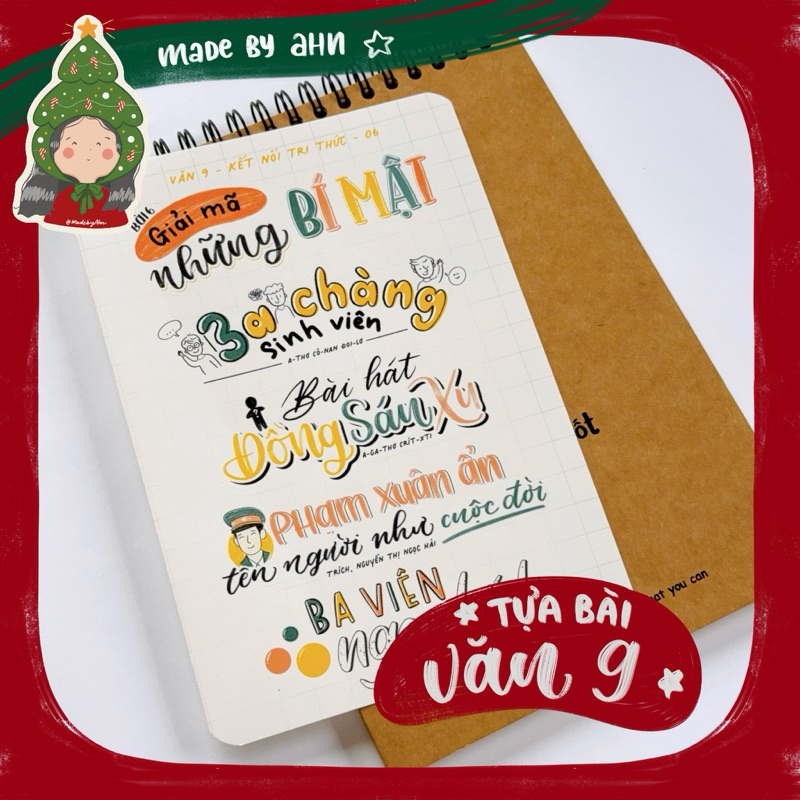 MADE BY AHN
@MadebyAhn
VĂN 9 - KẾT NỐI TRI THỨC - 06
BÀI 6
Giải mã
những BÍ MẬT
3a chàng
sinh viên
A-THƠ CÔ-NAN ĐOI-LƠ
Bài hát
Đồng Sáu Xu
A-GA-THƠ CRÍT-XTI
PHẠM XUÂN ẨN
tên người như cuộc đời
TRÍCH, NGUYỄN THỊ NGỌC HẢI
BA VIÊN
ốt
at you can
TỰA BÀI
văn 9